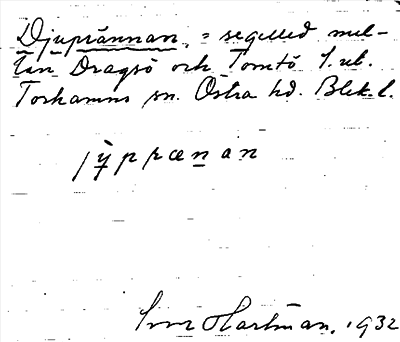 Djuprännan, = segelled mel-
lan Dragsö och Tomtö
Torhamns sn. Östra hd. Blek. l.
jypprænan
Hartman, 1932